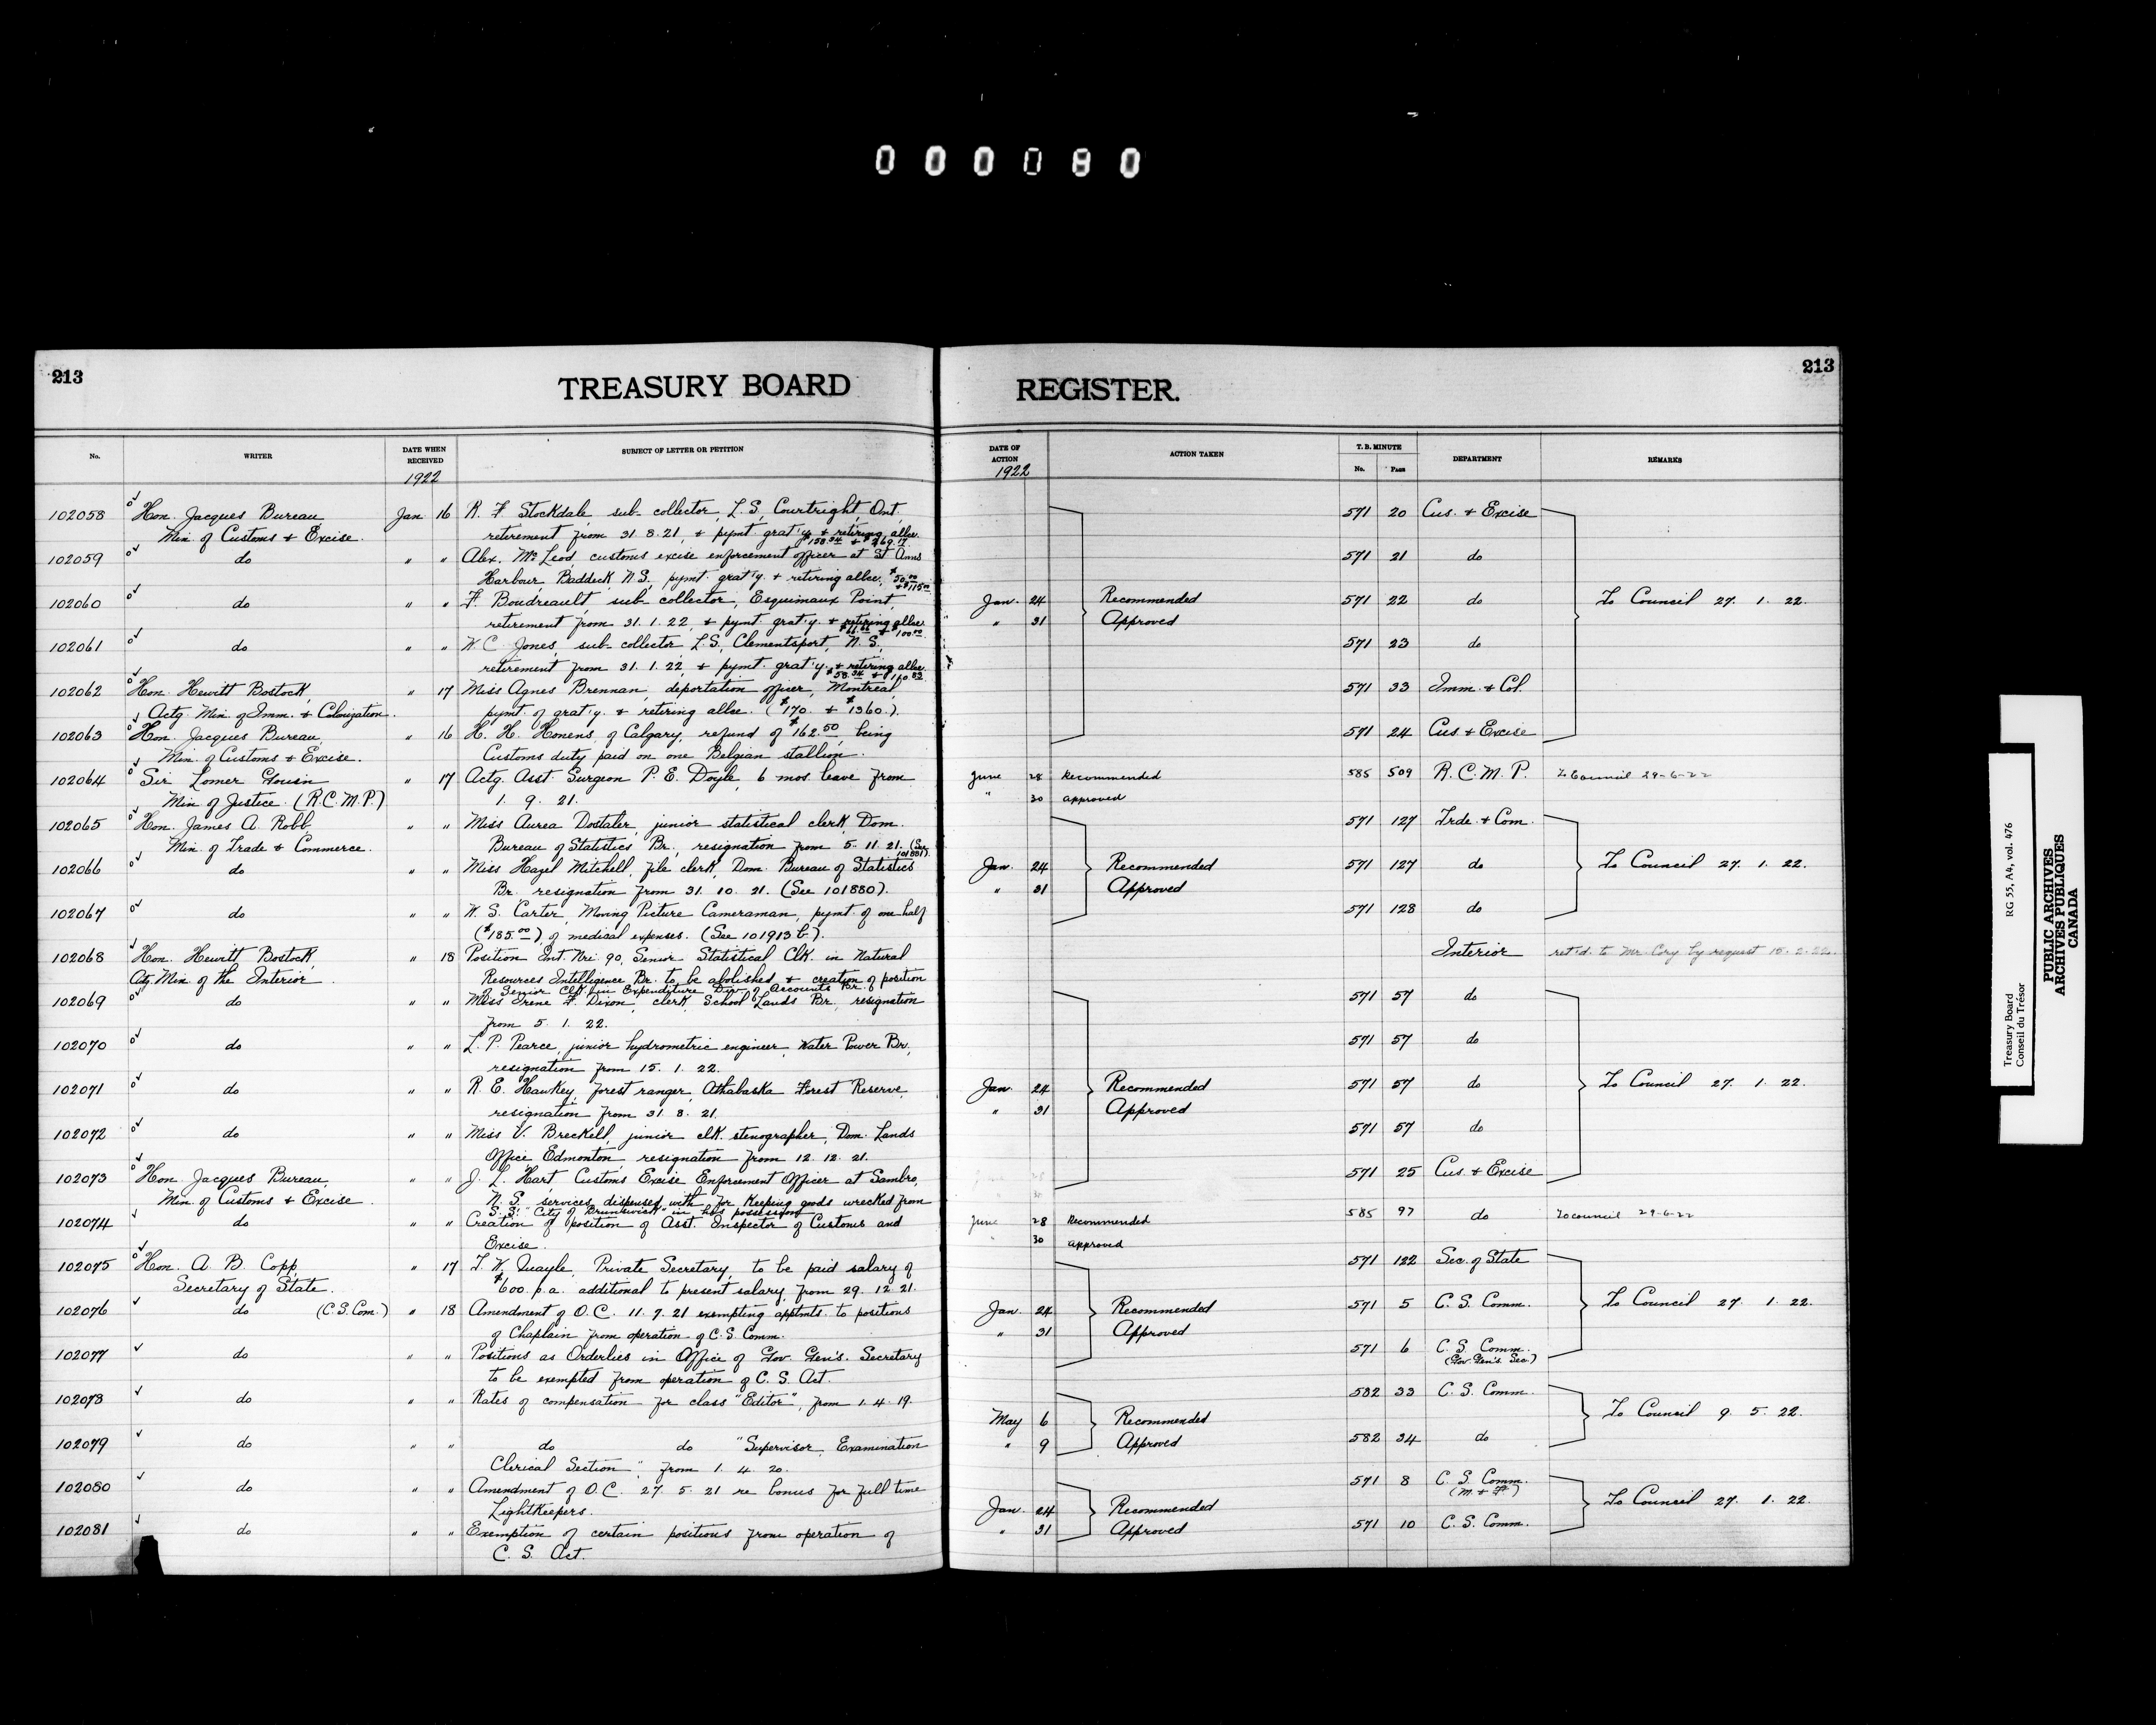 000080
213
TREASURY BOARD
REGISTER.
213
No.
WRITER
DATE WHEN RECEIVED
SUBJECT OF LETTER OR PETITION
DATE OF ACTION
ACTION TAKEN
T. B. MINUTE
No. Page
DEPARTMENT
REMARKS
1922
1922
102058 Hon. Jacques Bureau Jan. 16 R. F. Stockdale, sub-collector, L.S. Courtright, Ont. 571 20 Cus. & Excise
Min. of Customs & Excise. retirement from 31.8.21, & pymt grat'y & retiring allce.
$158.34 & $269.17
102059 do " " Alex. McLeod, customs excise enforcement officer at St Anns 571 21 do
Harbour, Baddeck, N.S., pymt. grat'y. & retiring allce. $50.00
& $115.00
102060 do " " F. Boudreault, sub-collector, Esquimaux Point, Jan. 24 Recommended 571 22 do To Council 27. 1. 22.
retirement from 31.1.22, & pymt grat'y. & retiring allce. " 31 Approved
$66.66 & $100.00
102061 do " " W. C. Jones, sub-collector L.S., Clementsport, N.S., 571 23 do
retirement from 31.1.22, & pymt. grat'y. & retiring allce.
$58.34
102062 Hon. Hewitt Bostock, " 17 Miss Agnes Brennan, deportation officer, Montreal, 571 33 Imm. & Col.
Actg. Min. of Imm. & Colonization. pymt. of grat'y. & retiring allce. ($170. & $1360.).
102063 Hon. Jacques Bureau, " 16 H. H. Honens, of Calgary, refund of $162.50, being 571 24 Cus & Excise
Min. of Customs & Excise. Customs duty paid on one Belgian stallion.
102064 Sir Lomer Gouin " 17 Actg. Asst. Surgeon P. E. Doyle, 6 mos. leave from June 28 Recommended 585 509 R. C. M. P. To Council 29-6-22
Min. of Justice. (R.C.M.P.) 1. 9. 21. " 30 approved
102065 Hon. James A. Robb, " " Miss Aurea Dostaler, junior statistical clerk, Dom. 571 127 Trde. & Com.
Min. of Trade & Commerce. Bureau of Statistics Br., resignation from 5.11.21. (See
101881).
102066 do " " Miss Hazel Mitchell, file clerk, Dom. Bureau of Statistics Jan. 24 Recommended 571 127 do To Council 27. 1. 22.
Br. resignation from 31. 10. 21. (See 101880). " 31 Approved
102067 do " " W. S. Carter, Moving Picture Cameraman, pymt. of one half 571 128 do
($185.00), of medical expenses. (See 101913 b.).
102068 Hon. Hewitt Bostock, " 18 Position Int. Nri. 90, Senior Statistical Clk. in Natural Interior ret'd. to Mr. Cory by request 15. 2. 22.
Actg. Min. of the Interior. Resources Intelligence Br. to be abolished & creation of position
of Senior Clk. in Expenditure Div. of Accounts Br.
102069 do " " Miss Irene F. Dixon, clerk, School Lands Br., resignation 571 57 do
from 5. 1. 22.
102070 do " " L. P. Pearce, junior hydrometric engineer, Water Power Br., 571 57 do
resignation from 15. 1. 22.
102071 do " " R. E. Hawkey, forest ranger, Athabaska Forest Reserve, Jan. 24 Recommended 571 57 do To Council 27. 1. 22.
resignation from 31. 8. 21. " 31 Approved
102072 do " " Miss V. Breckell, junior clk. stenographer, Dom. Lands 571 57 do
Office Edmonton resignation from 12. 12. 21.
102073 Hon. Jacques Bureau, " " J. L. Hart, Customs Excise Enforcement Officer at Sambro, 571 25 Cus. & Excise
Min. of Customs & Excise. N. S. services dispensed with for keeping goods wrecked from
S.S. "City of Brunswick" in his possession
102074 do " " Creation of position of Asst. Inspector of Customs and June 28 Recommended 585 97 do To council 29-6-22
Excise. " 30 approved
102075 Hon. A. B. Copp, " 17 T. W. Quayle, Private Secretary, to be paid salary of 571 122 Sec. of State
Secretary of State. $600. p.a. additional to present salary, from 29. 12. 21.
102076 do (C.S. Com.) " 18 Amendment of O.C. 11. 7. 21 exempting apptmts. to positions Jan. 24 Recommended 571 5 C. S. Comm. To Council 27. 1. 22.
of Chaplain from operation of C.S. Comm. " 31 Approved
102077 do " " Positions as Orderlies in Office of Gov. Gen's. Secretary 571 6 C. S. Comm.
to be exempted from operation of C. S. Act. (Gov. Gen's. Sec.)
102078 do " " Rates of compensation for class "Editor", from 1. 4. 19. 582 33 C. S. Comm.
May 6 Recommended To Council 9. 5. 22.
102079 do " " do do "Supervisor, Examination " 9 Approved 582 34 do
Clerical Section", from 1. 4. 20.
102080 do " " Amendment of O.C. 27. 5. 21 re bonus for full time 571 8 C. S. Comm.
(M. & F.)
Lightkeepers. Jan. 24 Recommended To Council 27. 1. 22.
102081 do " " Exemption of certain positions from operation of " 31 Approved 571 10 C. S. Comm.
C. S. Act.
Treasury Board RG 55, A4, vol. 476
Conseil du Trésor
PUBLIC ARCHIVES
ARCHIVES PUBLIQUES
CANADA